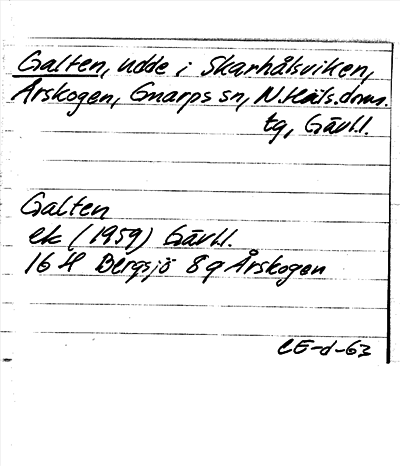 Galten, udde i Skarhålsviken,
Årskogen, Gnarps sn, N.Häls.doms.
tg, Gävl.l.
Galten
ek (1959) Gävl.l.
16 H Bergsjö 8g Årskogen
CE-d-63